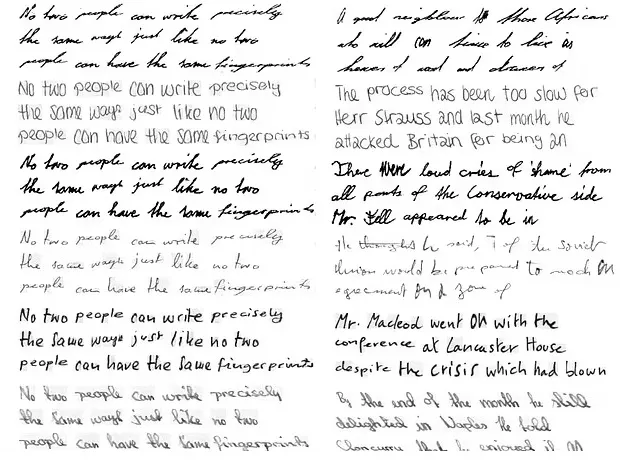 No two people can write precisely
the same ways just like no two
people can have the same fingerprints
No two people can write precisely
the same ways just like no two
people can have the same fingerprints
No two people can write precisely
the same ways just like no two
people can have the same fingerprints
No two people can write precisely
the same ways just like no two
people can have the same fingerprints
No two people can write precisely
the same ways just like no two
people can have the same fingerprints
No two people can write precisely
the same ways just like no two
people can have the same fingerprints
A good neighbour those Africans
who will to live as
of and of
The process has been too slow for
Herr Strauss and last month he
attacked Britain for being an
There were loud cries of 'shame' from
all parts of the Conservative side
Mr. appeared to be in
He thought he said, if the Soviet
Union would be prepared to reach an
agreement on a zone of
Mr. Macleod went on with the
conference at Lancaster House
despite the crisis which had blown
By the end of the month he still
delighted in Naples he told
that he enjoyed it